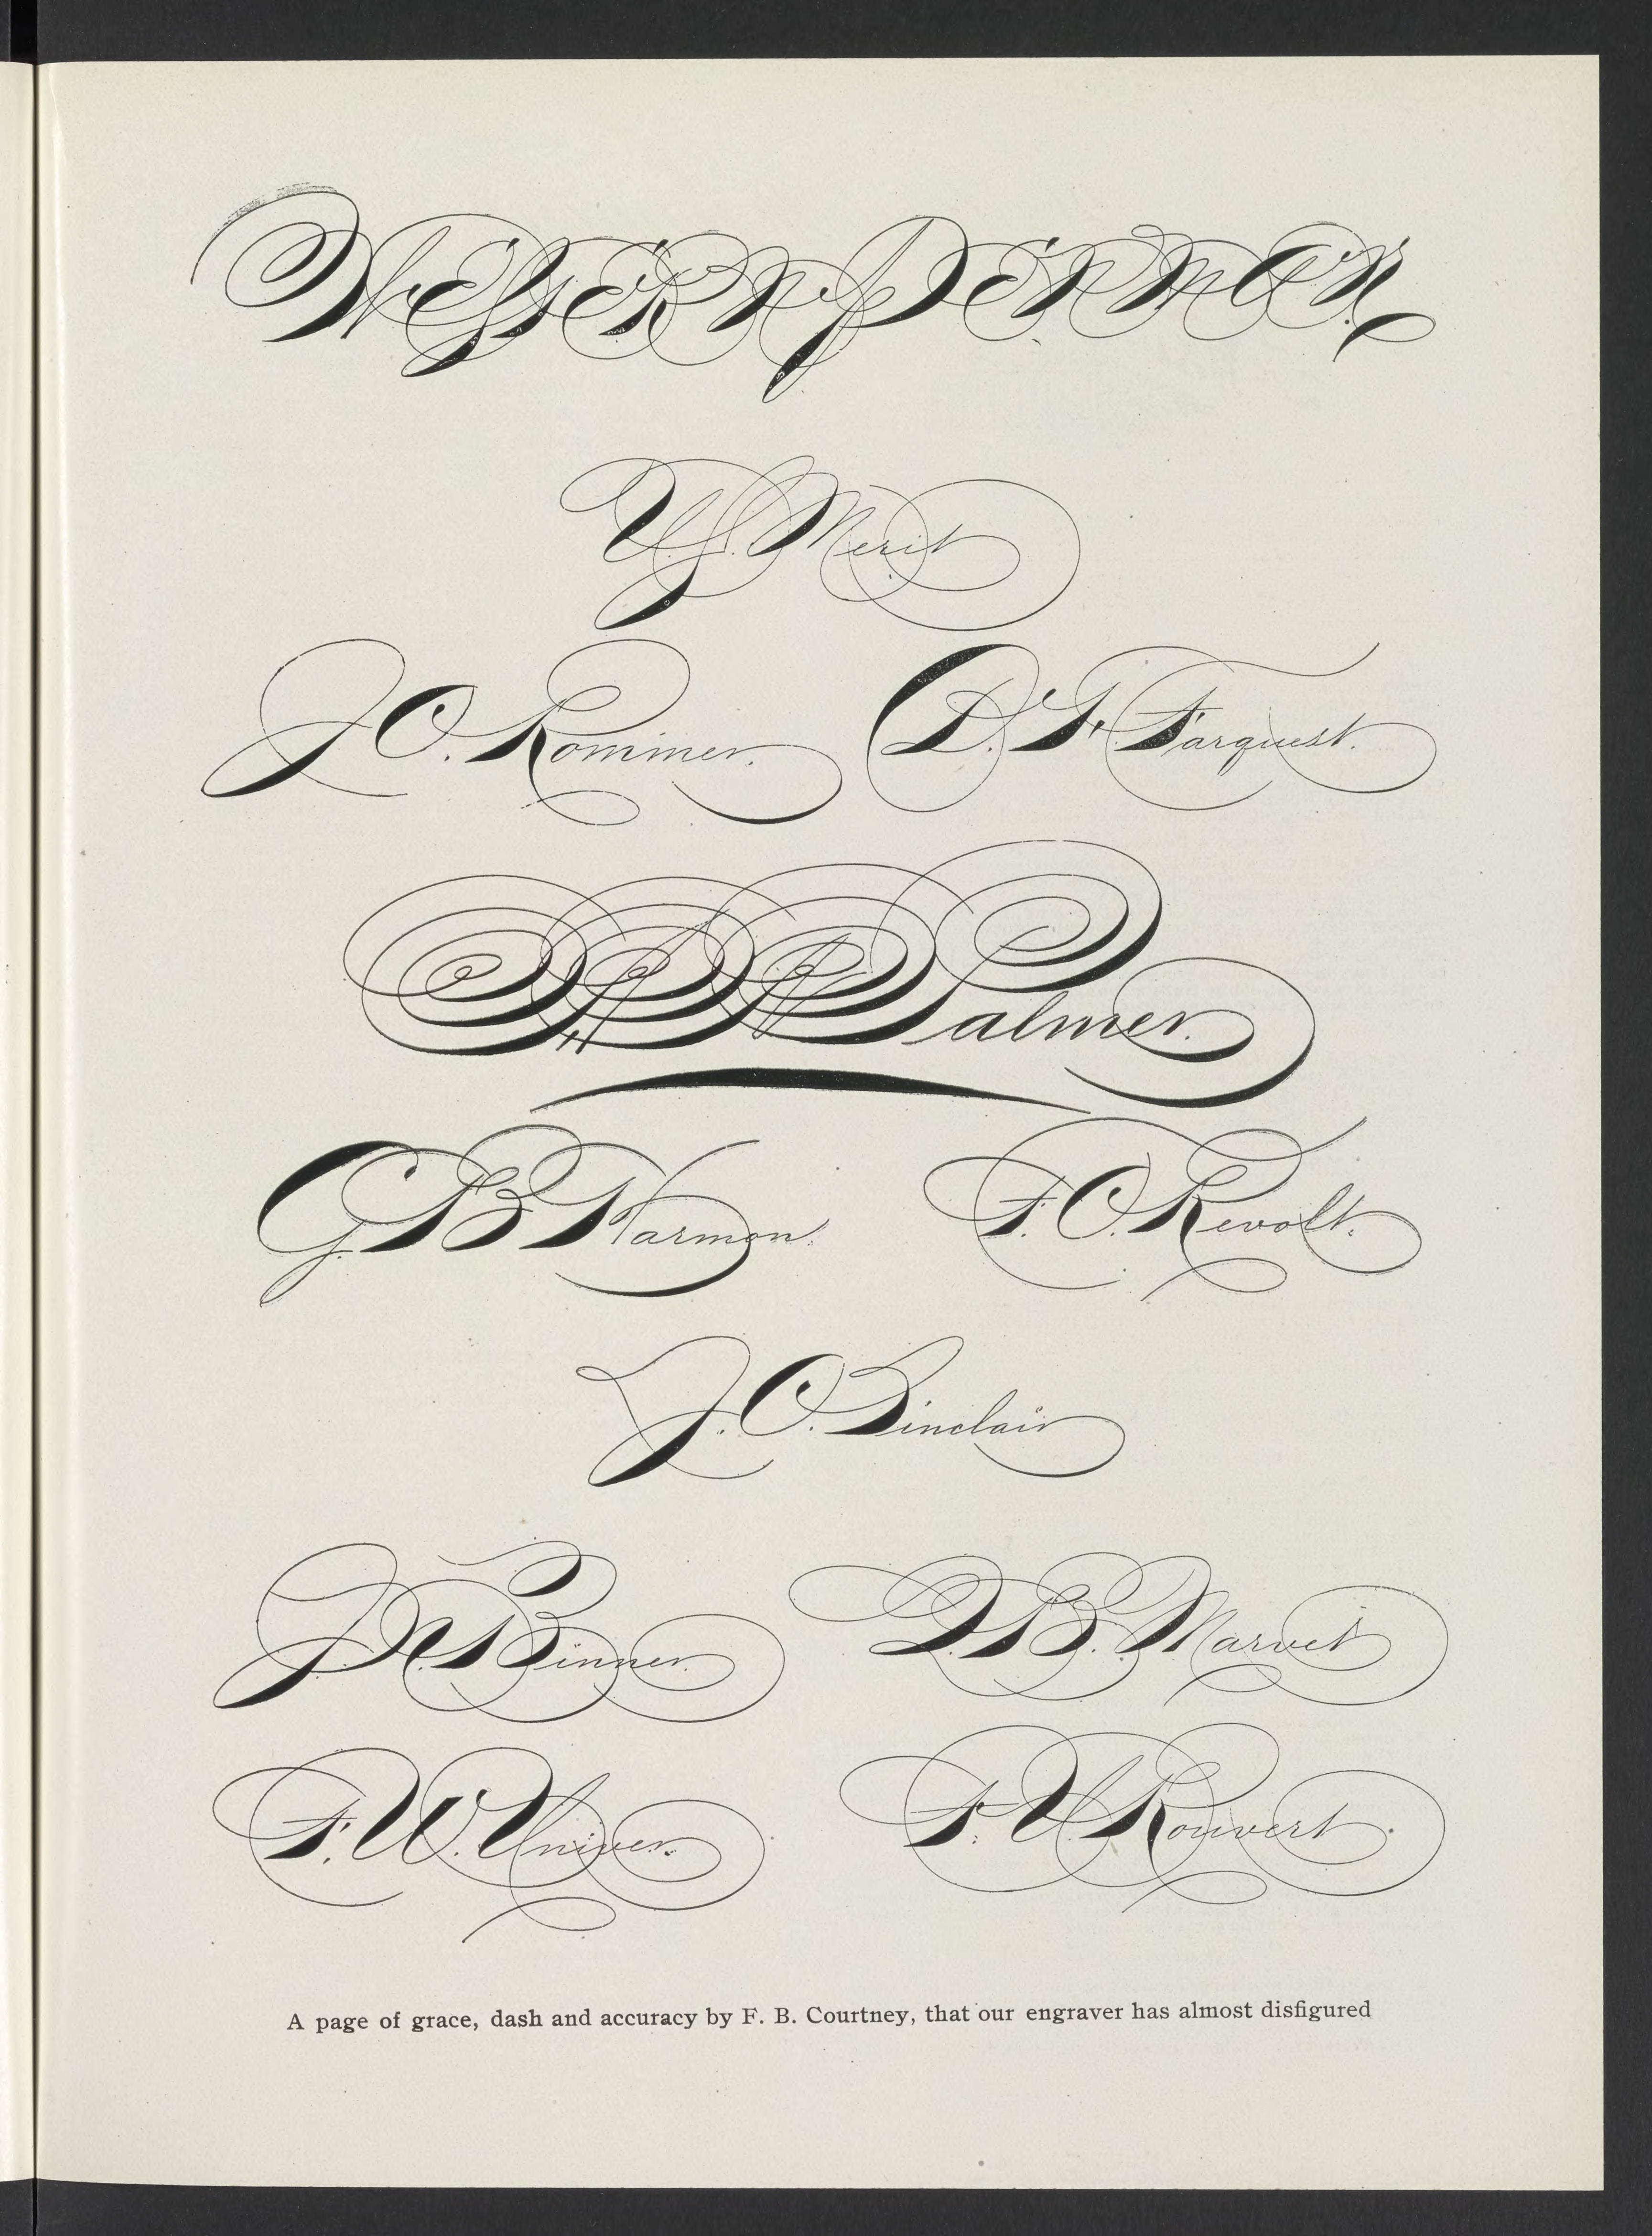 WESTERN PENMAN
Y. Merit
J. O. Rommer. D. F. Farquest.
A. N. Palmer.
G. B. Harmon. F. O. Revolt.
J. O. Sinclair
Binner. D. B. Marvet
F. W. Univer. F. U. Rouvert.
A page of grace, dash and accuracy by F. B. Courtney, that our engraver has almost disfigured